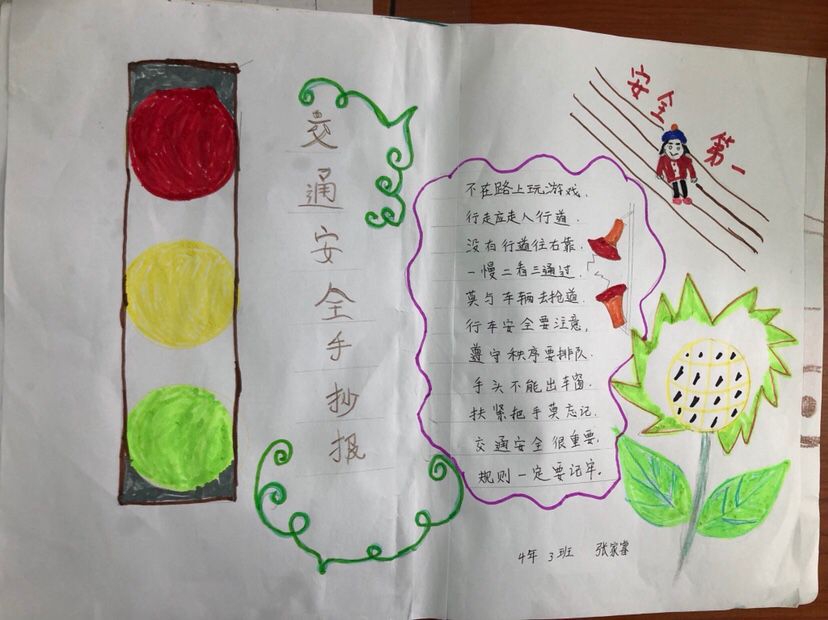 交通安全手抄报
安全第一
不在路上玩游戏.
行走应走人行道.
没有行道往右靠.
一慢二看三通过.
莫与车辆去抢道.
行车安全要注意,
遵守秩序要排队.
手头不能出车窗.
扶紧把手莫忘记.
交通安全很重要.
规则一定要记牢.
4年3班 张家睿